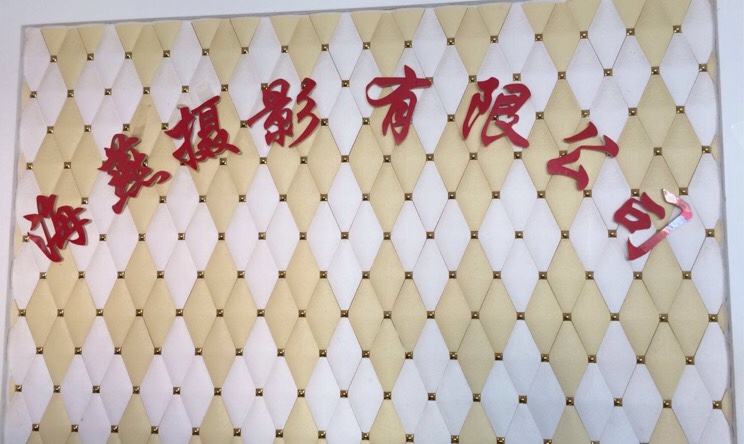 海燕摄影有限公司